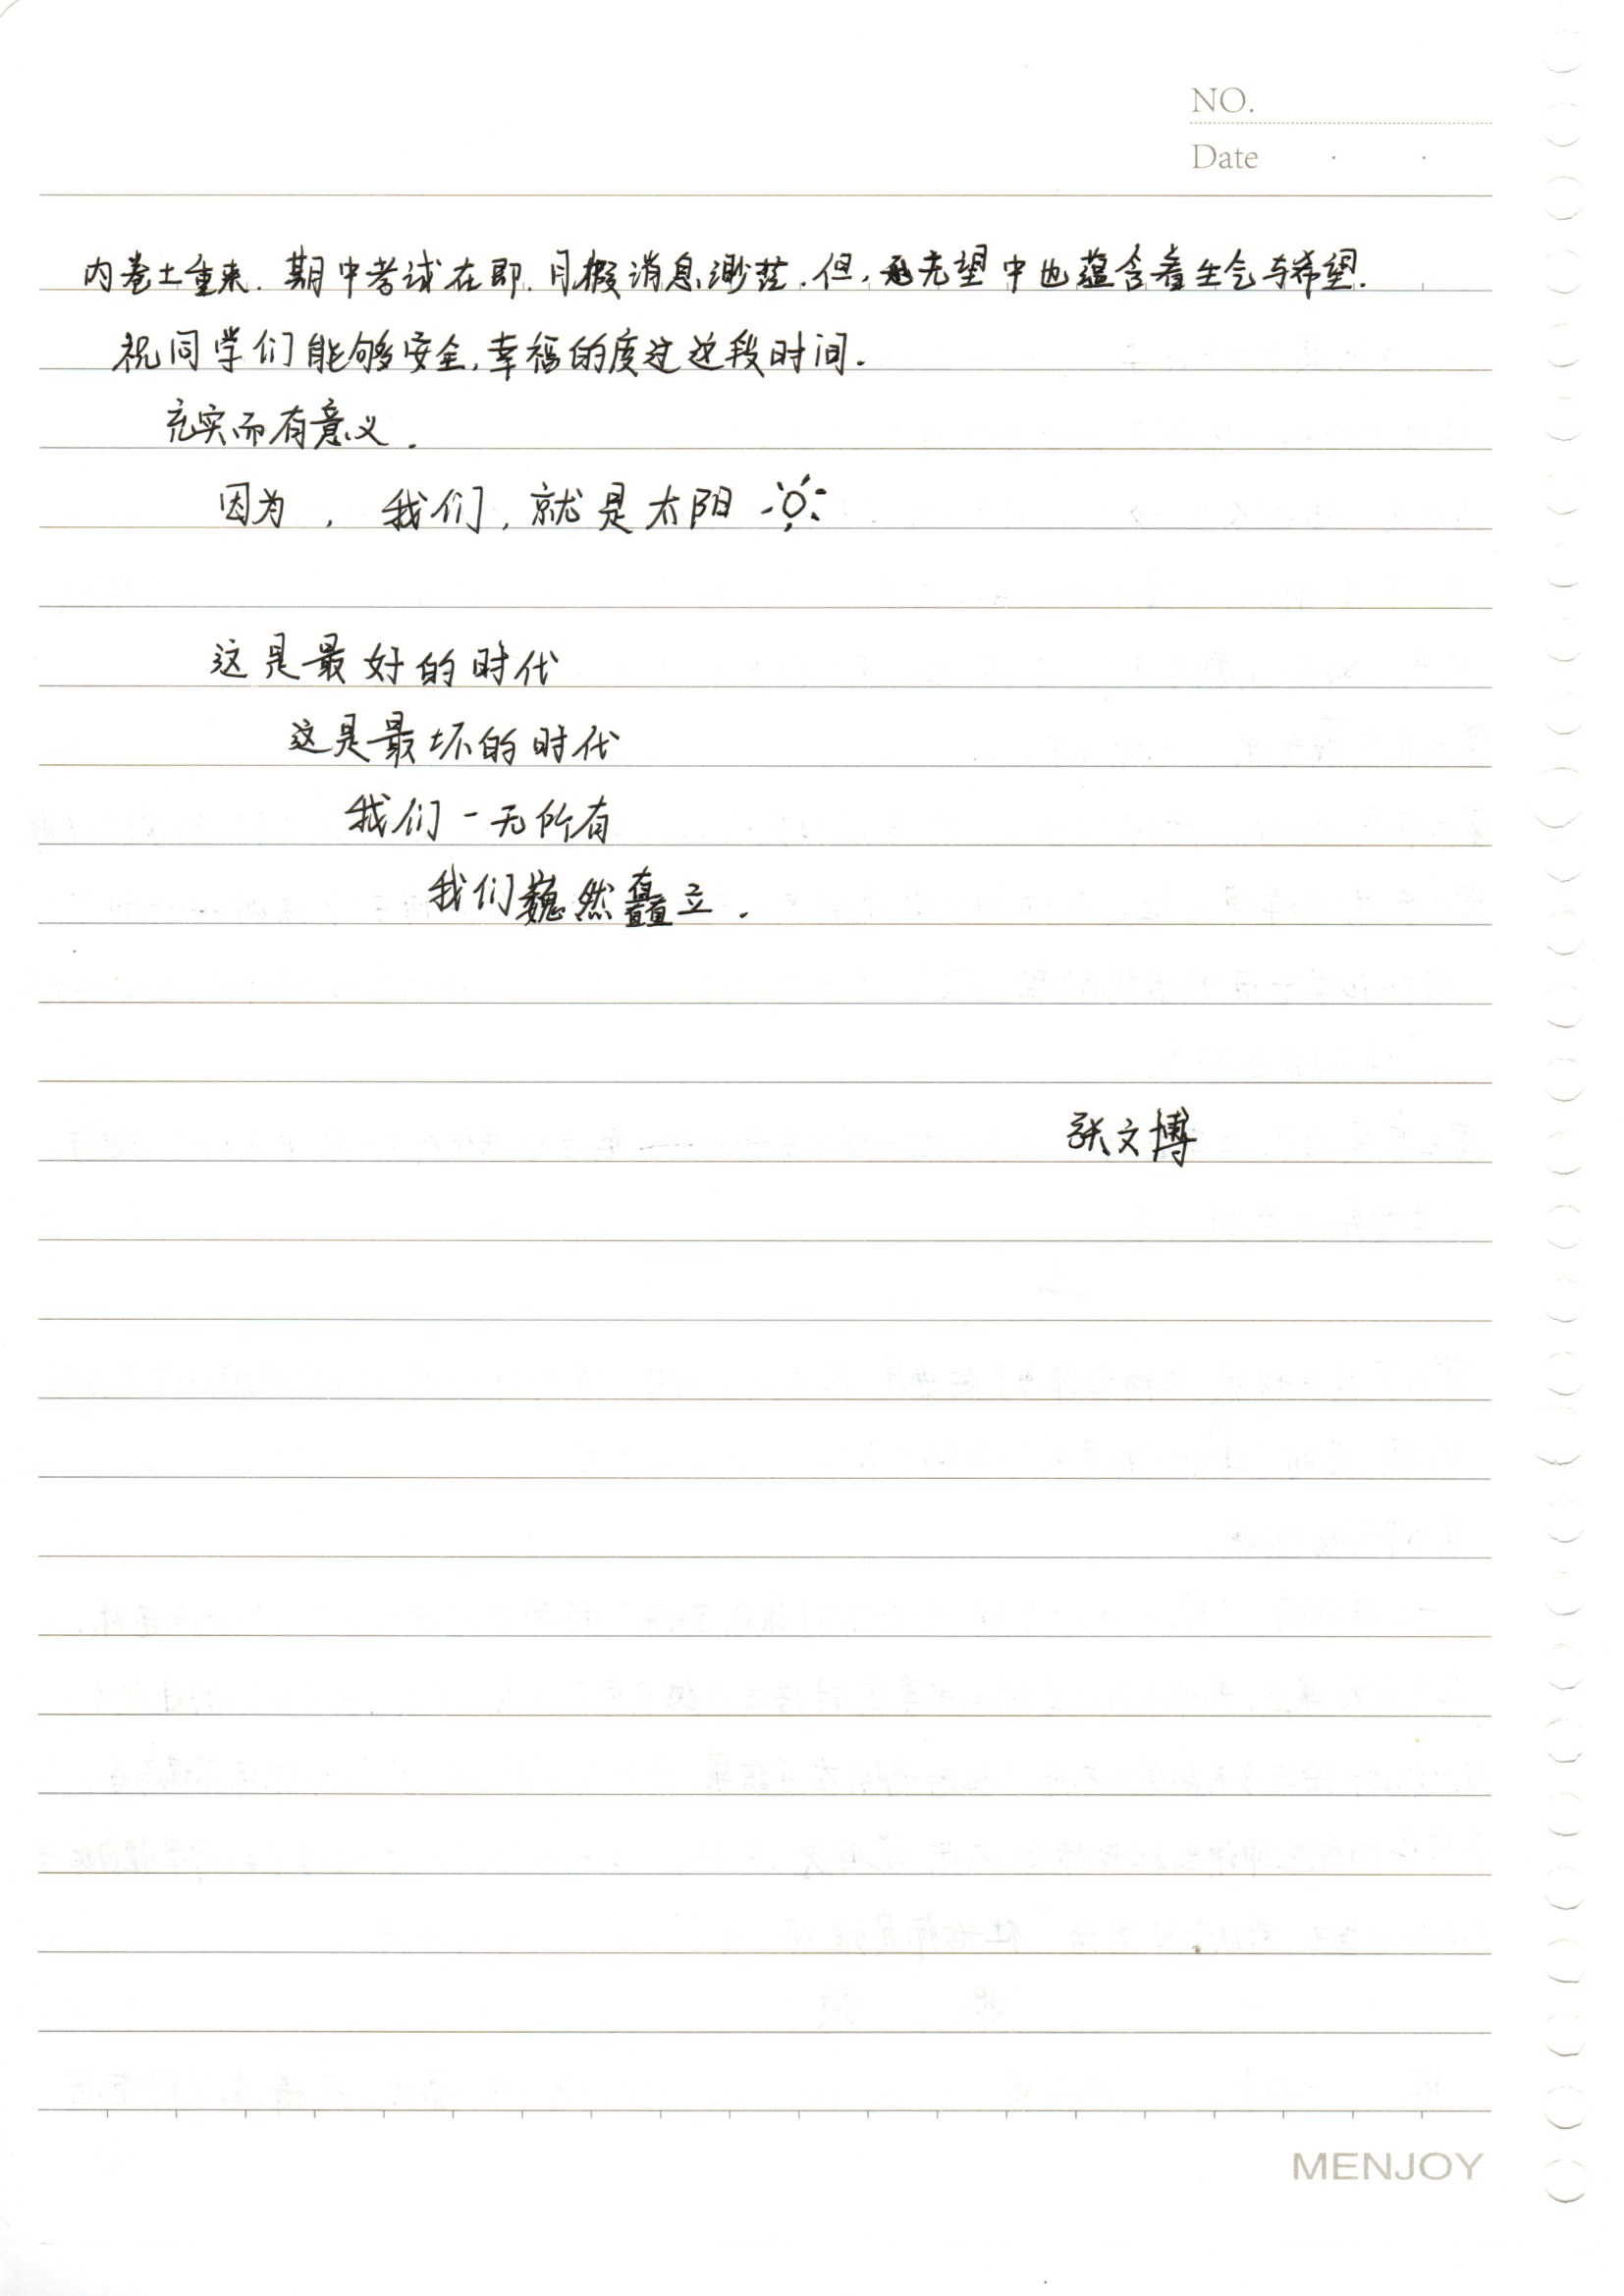 NO.
Date
内卷土重来.期中考试在即.月假消息渺茫.但,无望中也蕴含着生气与希望.
祝同学们能够安全,幸福的度过这段时间.
充实而有意义.
因为,我们,就是太阳
这是最好的时代
这是最坏的时代
我们一无所有
我们巍然矗立.
张文博
MENJOY